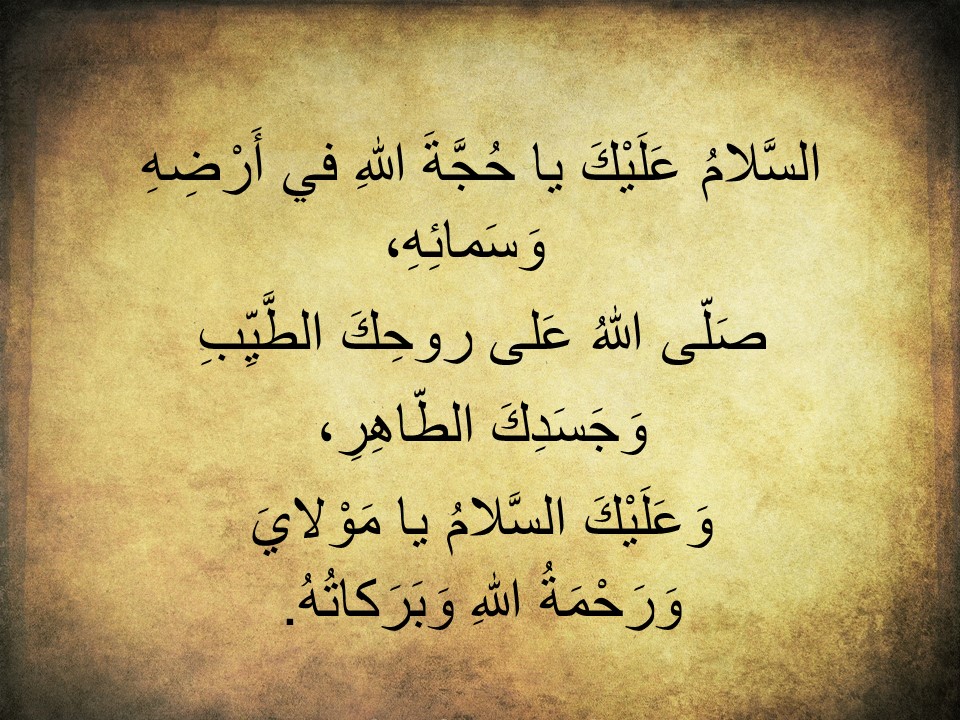 السَّلامُ عَلَيْكَ يا حُجَّةَ اللهِ في أَرْضِهِ
وَسَمائِهِ،
صَلّى اللهُ عَلى روحِكَ الطَّيِّبِ
وَجَسَدِكَ الطّاهِرِ،
وَعَلَيْكَ السَّلامُ يا مَوْلايَ
وَرَحْمَةُ اللهِ وَبَرَكاتُهُ.